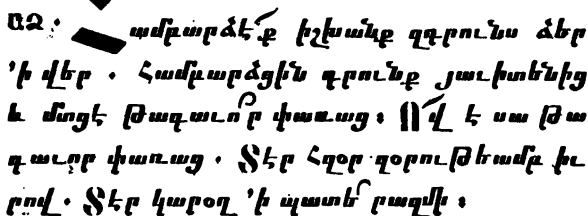 ԱՁ ։ ամբարձէ՛ք իշխանք զդրունս ձեր
՚ի վեր . համբարձցին դրունք յաւիտենից
և մտցէ թագաւո՛ր փառաց ։ Ո՛վ է սա թա
գաւոր փառաց . Տէր հզօր զօրութեամբ իւ
րով . Տէր կարօղ ՚ի պատե՛րազմի ։